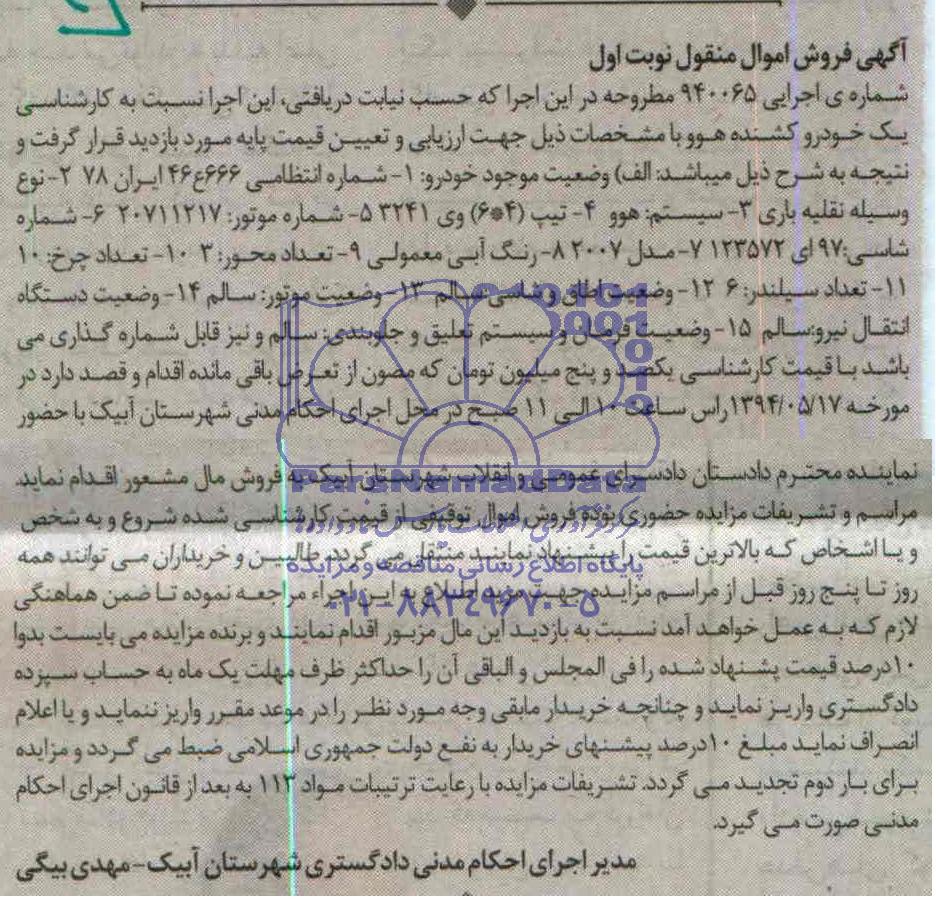 آگهی فروش اموال منقول نوبت اول
شماره ی اجرایی ۹۴۰۰۶۵ مطروحه در این اجرا که حسب نیابت دریافتی، این اجرا نسبت به کارشناسی
یک خودرو کشنده هوو با مشخصات ذیل جهت ارزیابی و تعیین قیمت پایه مورد بازدید قرار گرفت و
نتیجه به شرح ذیل میباشد: الف) وضعیت موجود خودرو: ۱- شماره انتظامی ۶۶۶ع۴۶ ایران ۷۸ ۲- نوع
وسیله نقلیه باری ۳- سیستم: هوو ۴- تیپ (۴*۶) وی ۳۲۴۱ ۵- شماره موتور: ۲۰۷۱۱۲۱۷ ۶- شماره
شاسی: ۹۷ ای ۱۲۳۵۷۲ ۷- مدل ۲۰۰۷ ۸- رنگ آبی معمولی ۹- تعداد محور: ۳ ۱۰- تعداد چرخ: ۱۰
۱۱- تعداد سیلندر: ۶ ۱۲- وضعیت اطاق و شاسی: سالم ۱۳- وضعیت موتور: سالم ۱۴- وضعیت دستگاه
انتقال نیرو: سالم ۱۵- وضعیت فرمان و سیستم تعلیق و جلوبندی: سالم و نیز قابل شماره گذاری می
باشد با قیمت کارشناسی یکصد و پنج میلیون تومان که مصون از تعرض باقی مانده اقدام و قصد دارد در
مورخه ۱۳۹۴/۰۵/۱۷ راس ساعت ۱۰ الی ۱۱ صبح در محل اجرای احکام مدنی شهرستان آبیک با حضور
نماینده محترم دادستان دادسرای عمومی و انقلاب شهرستان آبیک به فروش مال مشعور اقدام نماید.
مراسم و تشریفات مزایده حضوری بوده فروش اموال توقیفی از قیمت کارشناسی شده شروع و به شخص
و یا اشخاص که بالاترین قیمت را پیشنهاد نمایند منتقل می گردد. طالبین و خریداران می توانند همه
روز تا پنج روز قبل از مراسم مزایده جهت مزید اطلاع به این اجراء مراجعه نموده تا ضمن هماهنگی
لازم که به عمل خواهد آمد نسبت به بازدید این مال مزبور اقدام نمایند و برنده مزایده می بایست بدوا
۱۰درصد قیمت پشنهاد شده را فی المجلس و الباقی آن را حداکثر ظرف مهلت یک ماه به حساب سپرده
دادگستری واریز نماید و چنانچه خریدار مابقی وجه مورد نظر را در موعد مقرر واریز ننماید و یا اعلام
انصراف نماید مبلغ ۱۰درصد پیشنهای خریدار به نفع دولت جمهوری اسلامی ضبط می گردد و مزایده
برای بار دوم تجدید می گردد. تشریفات مزایده با رعایت ترتیبات مواد ۱۱۳ به بعد از قانون اجرای احکام
مدنی صورت می گیرد.
مدیر اجرای احکام مدنی دادگستری شهرستان آبیک-مهدی بیگی
ParsNamadData
پایگاه اطلاع رسانی مناقصه و مزایده
۰۲۱-۸۸۳۴۹۶۷۰-۵